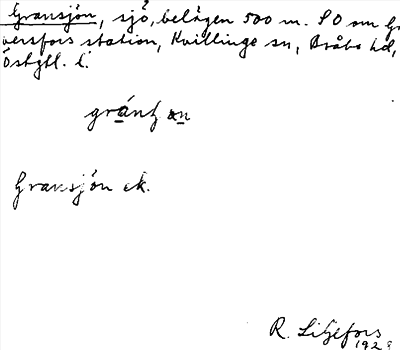 Gransjön, sjö, belägen 500 m. SO om Gr
versfors station, Kvillinge sn, Bråbo hd,
Östgtl. l.
Gransjön ek.
R. Liljefors